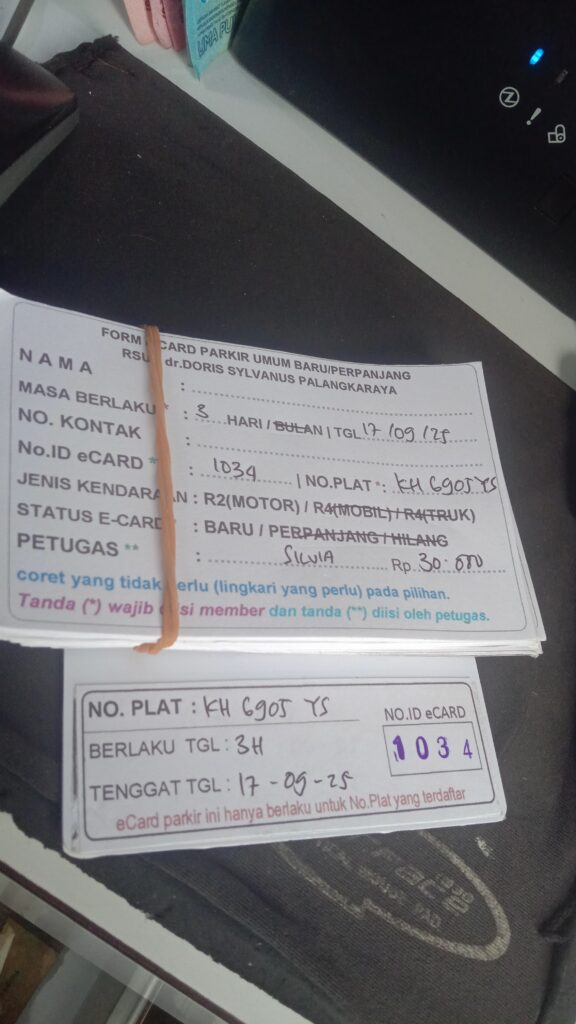 FORM CARD PARKIR UMUM BARU/PERPANJANG
RSU dr.DORIS SYLVANUS PALANGKARAYA
NAMA :
MASA BERLAKU * : 3 HARI / BULAN | TGL 17 /09 /25
NO. KONTAK :
No.ID eCARD * : 1034 | NO.PLAT *: KH 6905 YS
JENIS KENDARAAN : R2(MOTOR) / R4(MOBIL) / R4(TRUK)
STATUS E-CARD * : BARU / PERPANJANG / HILANG
PETUGAS ** : SILVIA Rp. 30.000
coret yang tidak perlu (lingkari yang perlu) pada pilihan.
Tanda (*) wajib diisi member dan tanda (**) diisi oleh petugas.
NO. PLAT : KH 6905 YS
NO.ID eCARD
1034
BERLAKU TGL : 3H
TENGGAT TGL : 17 - 09 - 25
eCard parkir ini hanya berlaku untuk No.Plat yang terdaftar